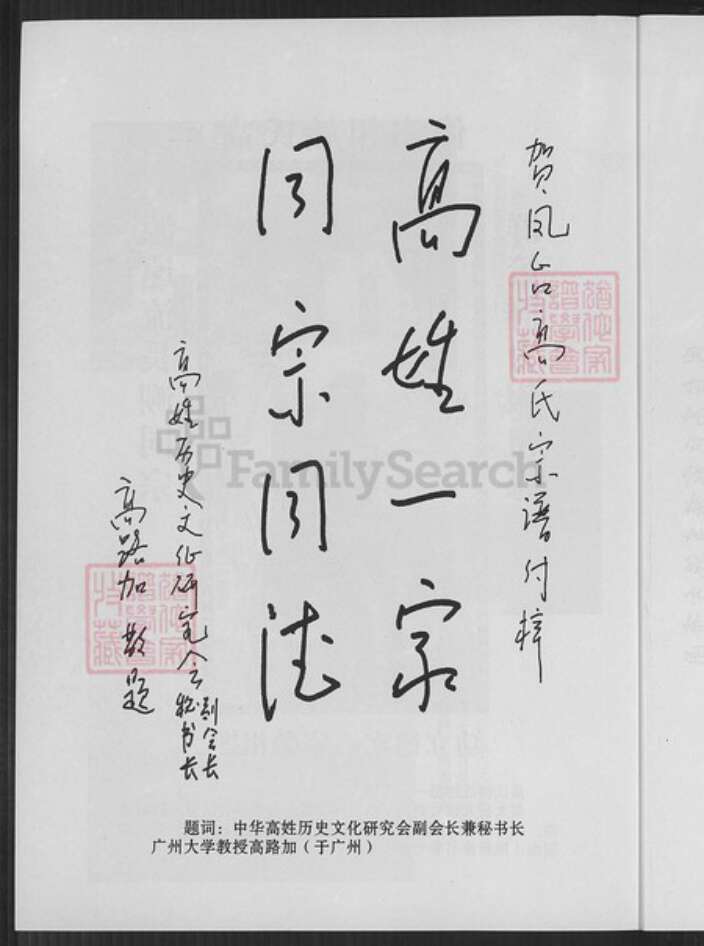 贺凤台高氏宗谱付梓
高姓一家
同宗同德
高姓历史文化研究会
副会长
秘书长
高路加 敬题
譜學會
特藏
譜學會
特藏
FamilySearch
题词：中华高姓历史文化研究会副会长兼秘书长
广州大学教授高路加（于广州）